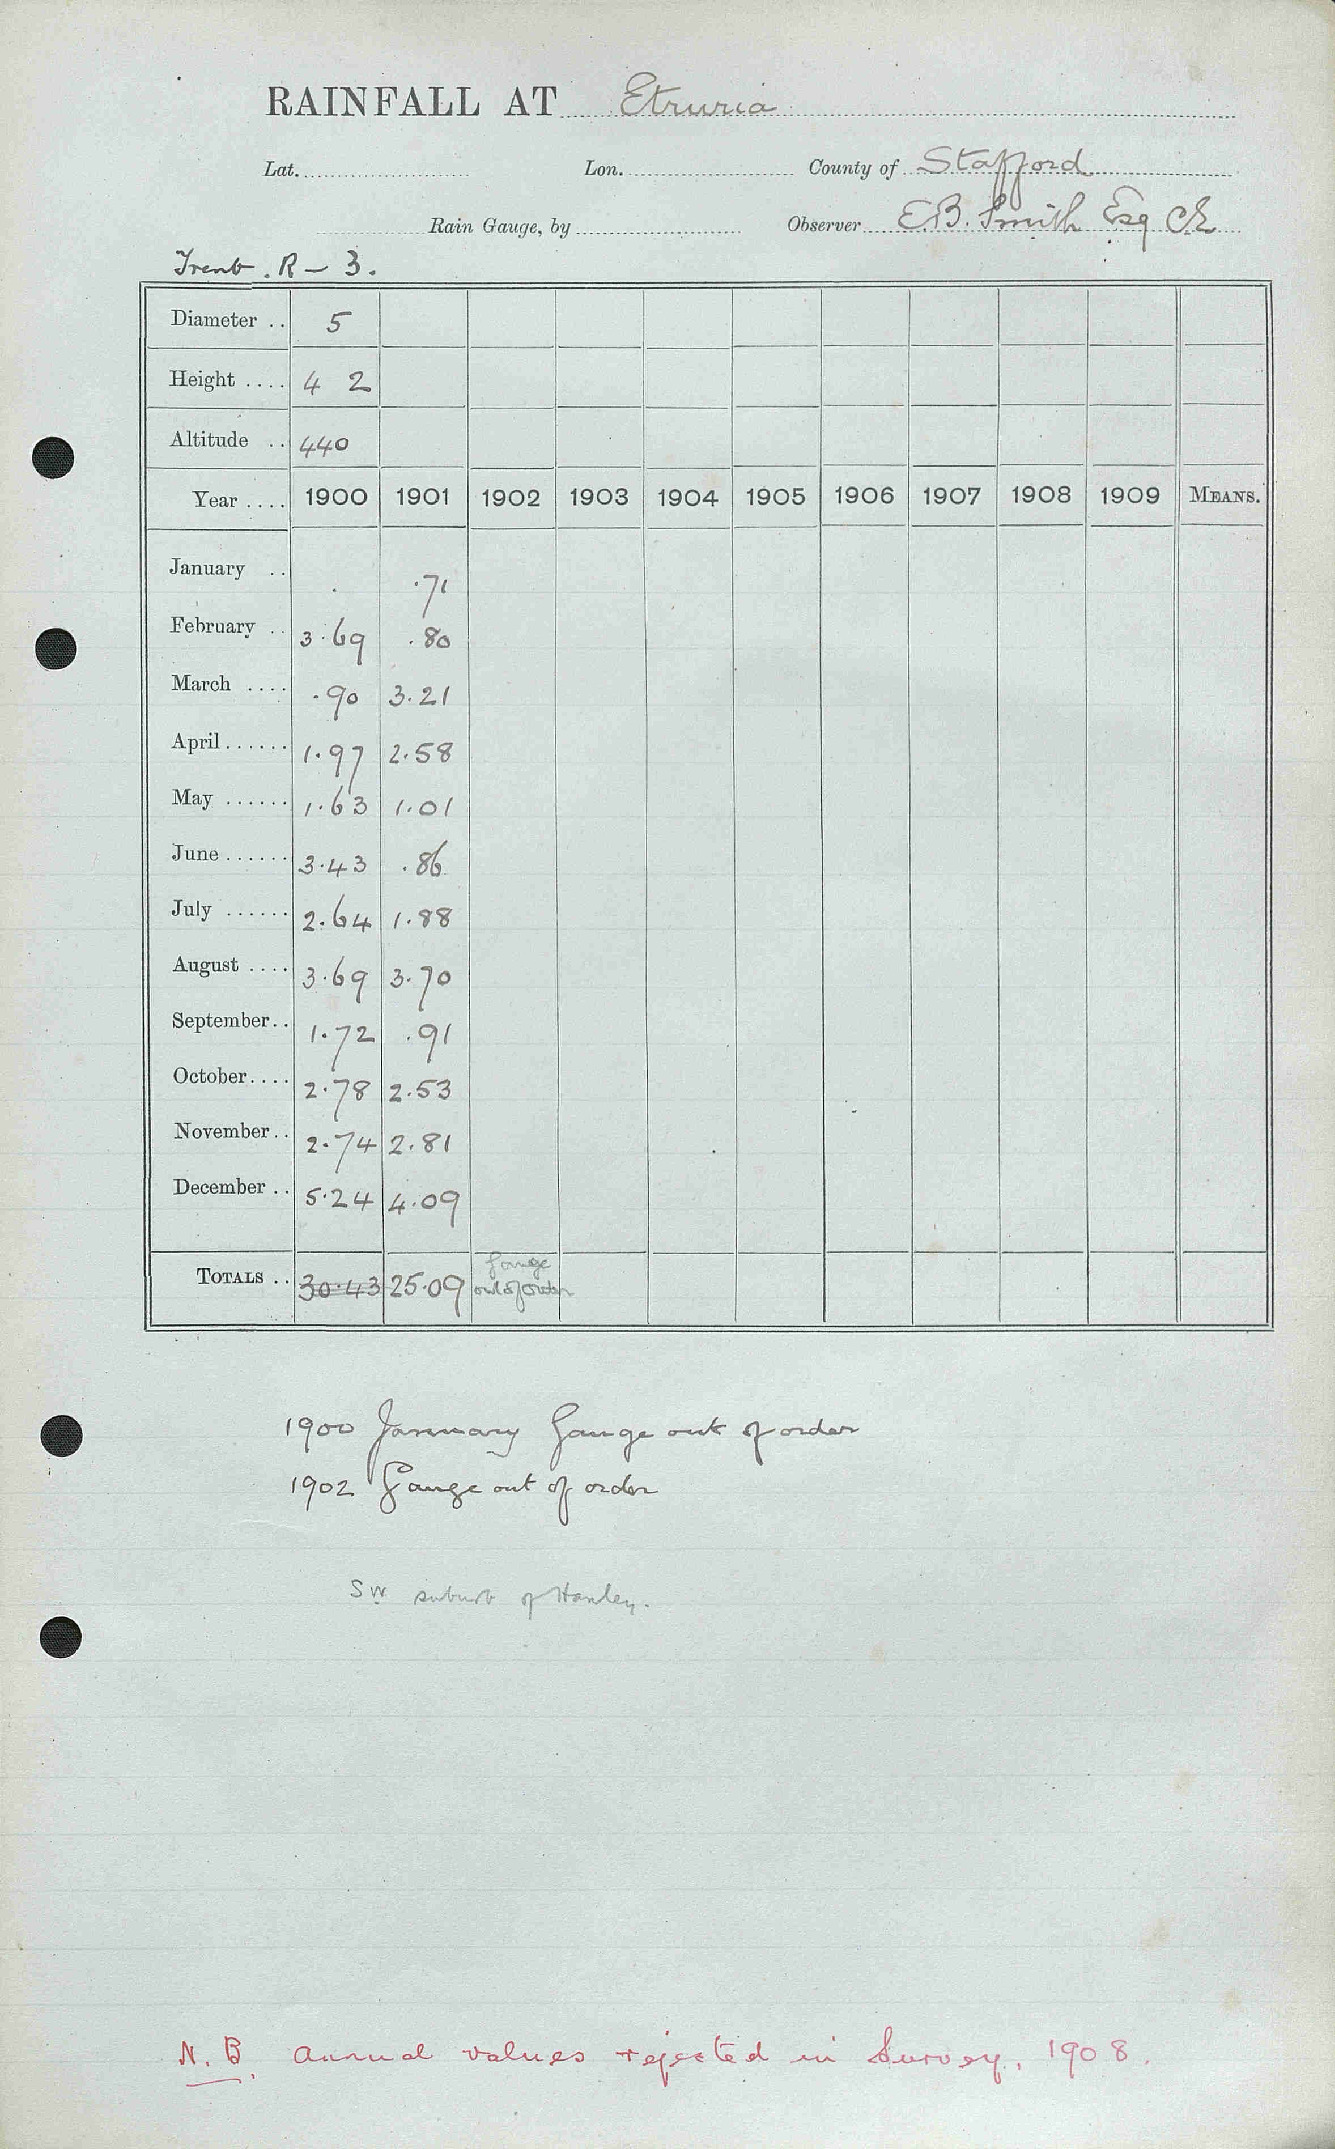 RAINFALL AT Etruria
Lat. Lon. County of Stafford
Rain Gauge, by Observer E.B. Smith Esq CE
Trent. R – 3.
Diameter .. 5
Height .... 4 2
Altitude .. 440
Year .... 1900 1901 1902 1903 1904 1905 1906 1907 1908 1909 MEANS.
January .. .71
February .. 3.69 .80
March .... .90 3.21
April...... 1.97 2.58
May ...... 1.63 1.01
June...... 3.43 .86
July ...... 2.64 1.88
August .... 3.69 3.70
September.. 1.72 .91
October.... 2.78 2.53
November.. 2.74 2.81
December .. 5.24 4.09
TOTALS .. 30.43 25.09 Gauge out of order
1900 January Gauge out of order
1902 Gauge out of order
SW suburb of Hanley.
N.B. Annual values rejected in Survey, 1908.